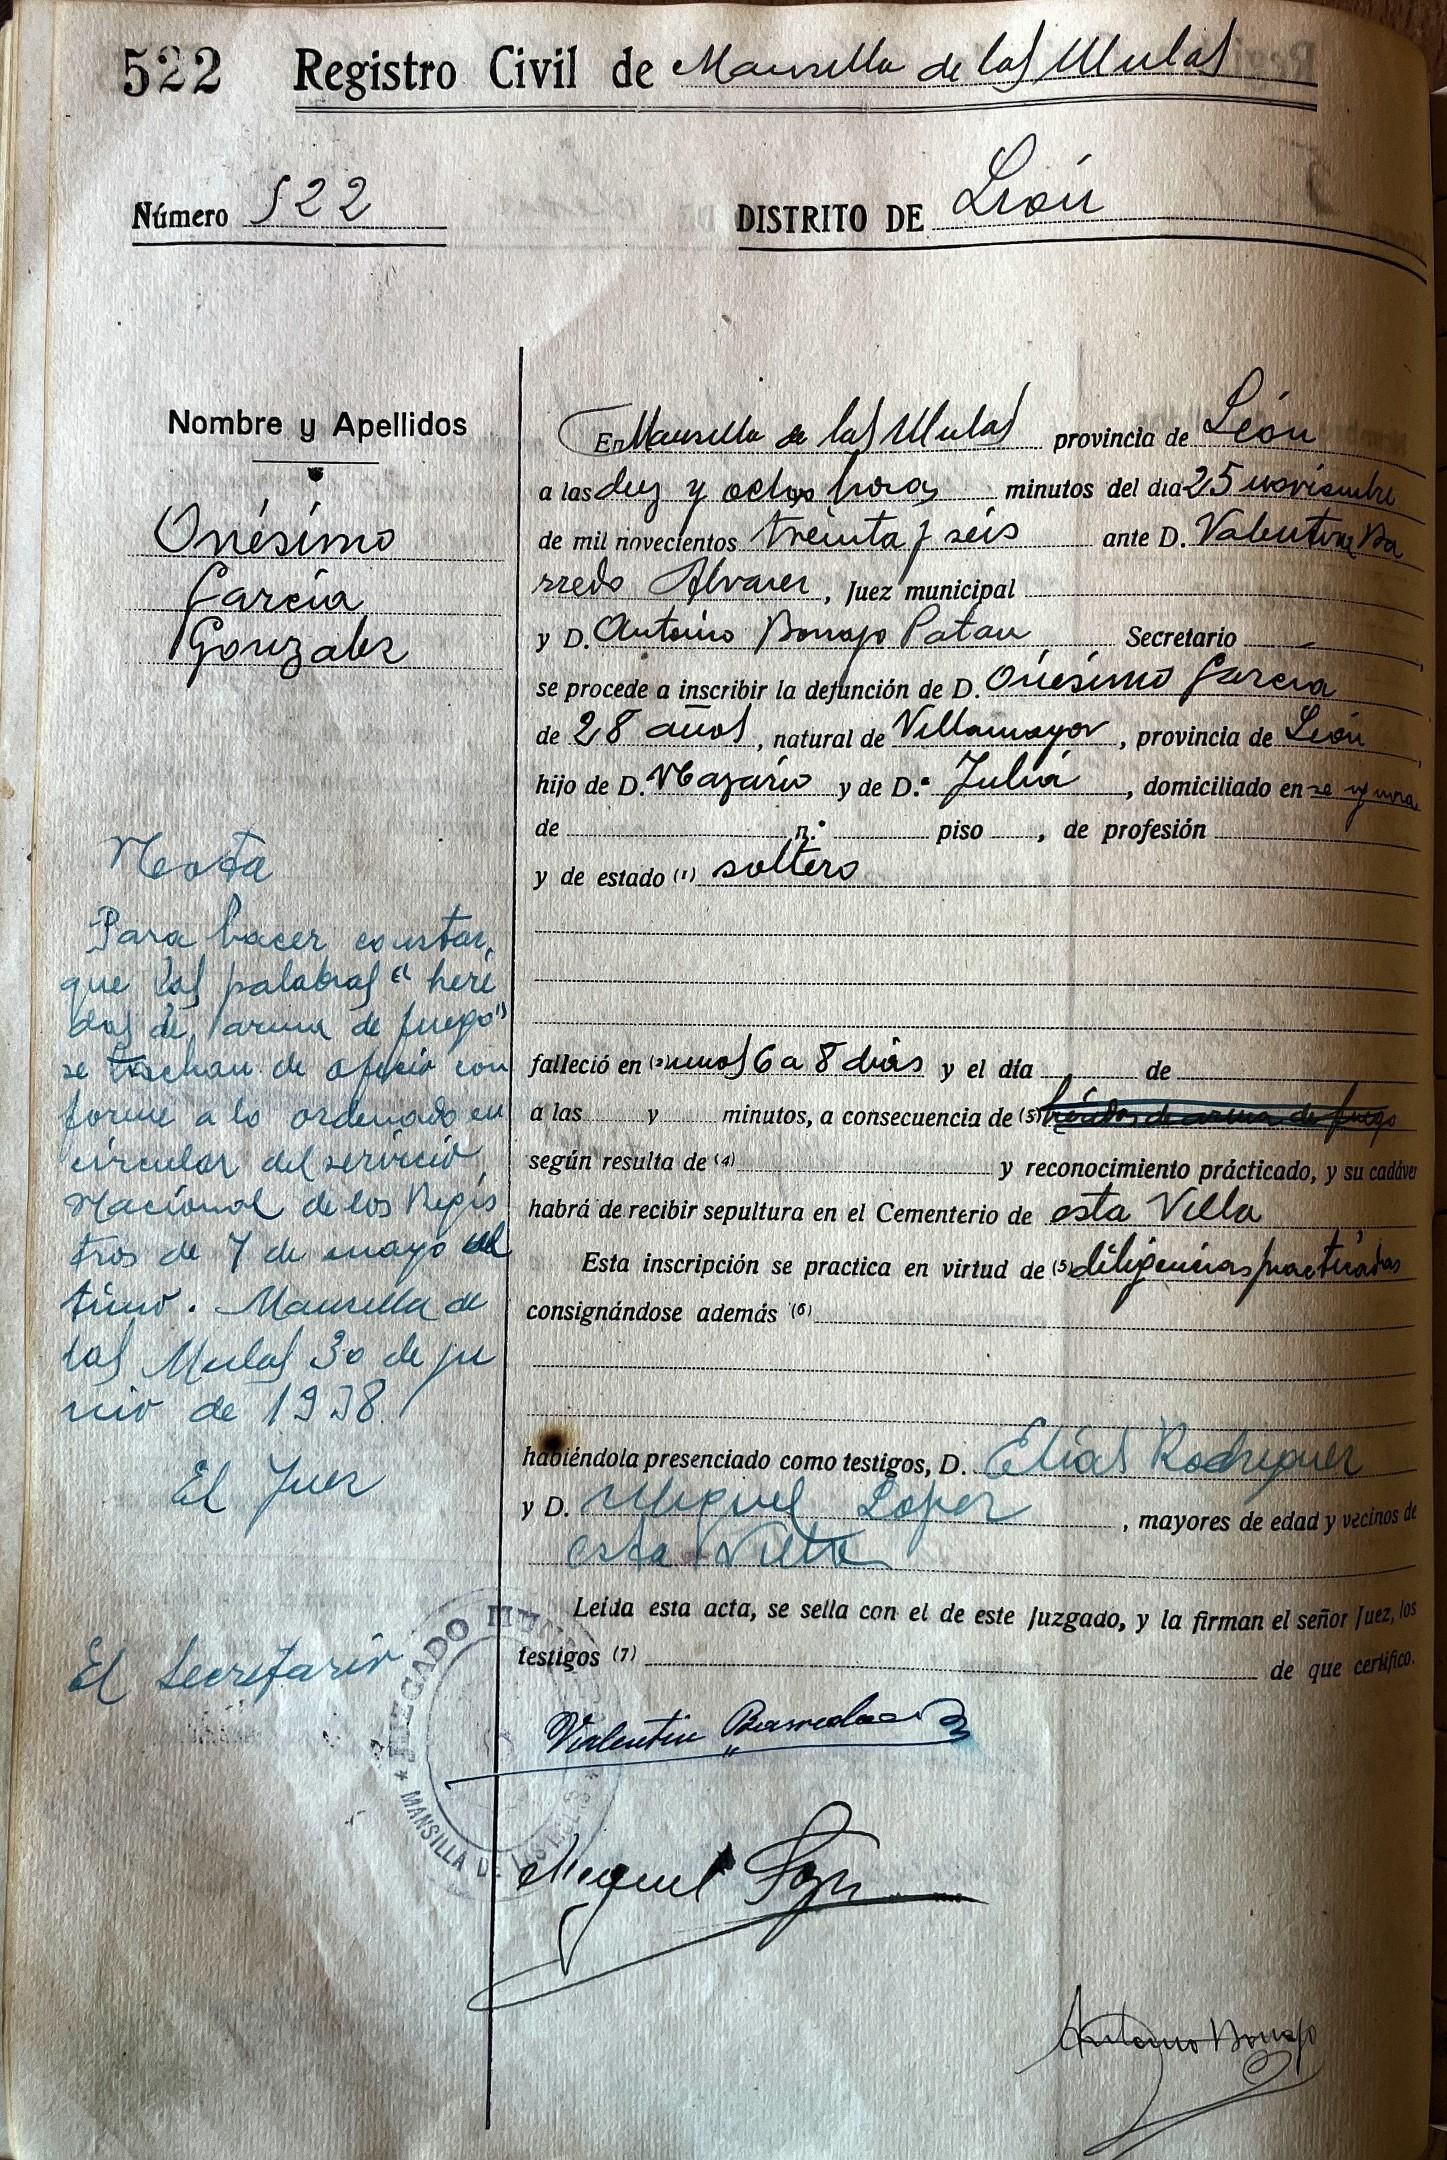 522 Registro Civil de Mansilla de las Mulas
Número 522 DISTRITO DE León
Nombre y Apellidos
Onésimo
García
Gonzalez
En Mansilla de las Mulas provincia de León
a las diez y ocho horas minutos del día 25 noviembre
de mil novecientos treinta y seis ante D. Valentin Ba
rredo Alvarez, Juez municipal
y D. Antonio Borrajo Patau Secretario
se procede a inscribir la defunción de D. Onésimo García
de 28 años, natural de Villamayor, provincia de León
hijo de D. Nazario y de D.ª Julia, domiciliado en se ignora
de n.º piso , de profesión
y de estado (1) soltero
falleció en (2) unos 6 a 8 dias y el día de
a las y minutos, a consecuencia de (3) heridas de arma de fuego
según resulta de (4) y reconocimiento prácticado, y su cadáver
habrá de recibir sepultura en el Cementerio de esta Villa
Esta inscripción se practica en virtud de (5) diligencias practicadas
consignándose además (6)
habiéndola presenciado como testigos, D. Elías Rodriguez
y D. Miguel Lopez, mayores de edad y vecinos de
esta Villa
Leída esta acta, se sella con el de este Juzgado, y la firman el señor Juez, los
testigos (7) de que certifico.
Nota
Para hacer constar,
que las palabras "heri
das de arma de fuego"
se tachan de oficio con
forme a lo ordenado en
circular del servicio
Nacional de los Regis
tros de 7 de mayo ul
timo. Mansilla de
las Mulas 30 de ju
nio de 1938.
El Juez
El Secretario
JUZGADO MUNI
MANSILLA DE LAS MULAS
Valentin Barredo
Miguel Lopez
Antonio Borrajo